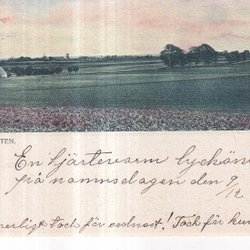 TEN.
En hjärtevarm lyckön
på namnsdagen den 9/12
nerligt tack för ocdnast! Tack för kun